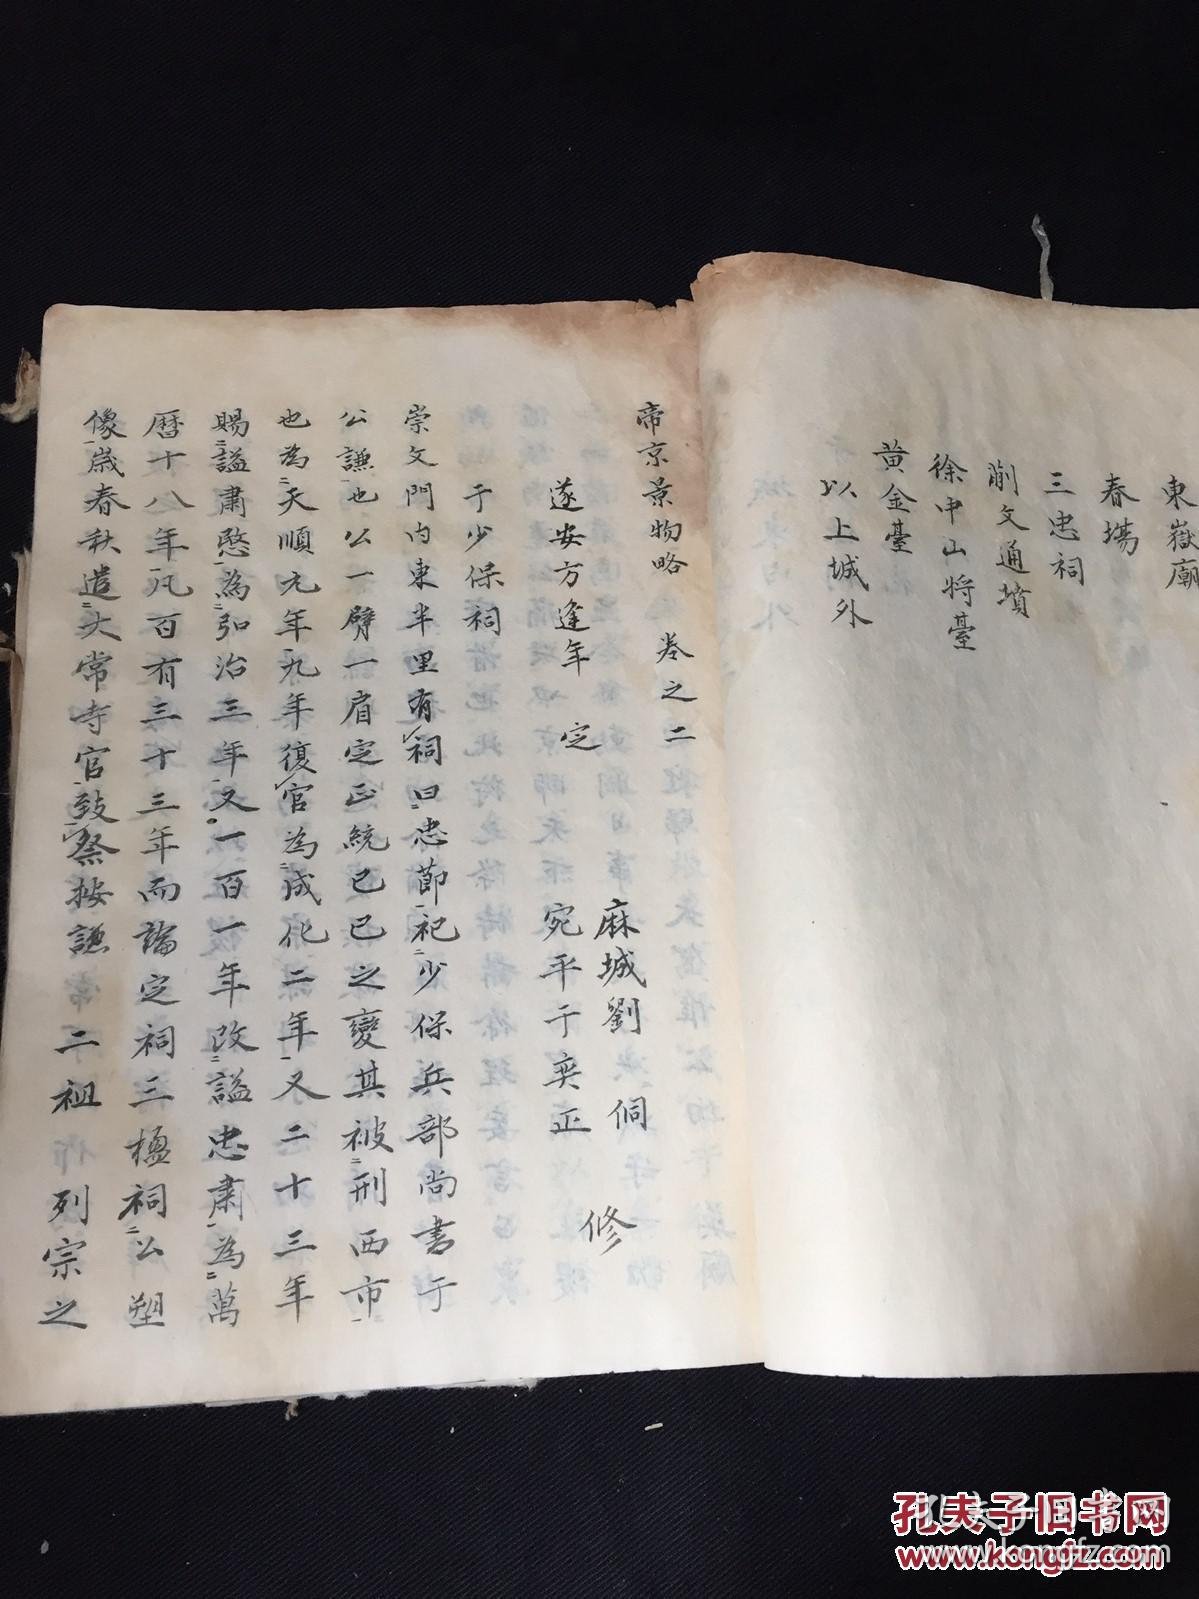 東嶽廟
春場
三忠祠
蒯文通墳
徐中山將臺
黄金臺
以上城外
帝京景物略 卷之二
遂安方逢年 定
麻城劉侗
宛平于奕正 修
于少保祠
崇文門内東半里有祠曰忠節祀少保兵部尚書于
公謙也公一臂一肩定正統已巳之變其被刑西市
也為天順元年九年復官為成化二年又二十三年
賜謚肅愍為弘治三年又一百一年改謚忠肅為萬
曆十八年凡百有三十三年而論定祠三楹祠公塑
像歲春秋遣太常寺官致祭按謙 二祖列宗之
孔夫子旧书网
www.kongfz.com